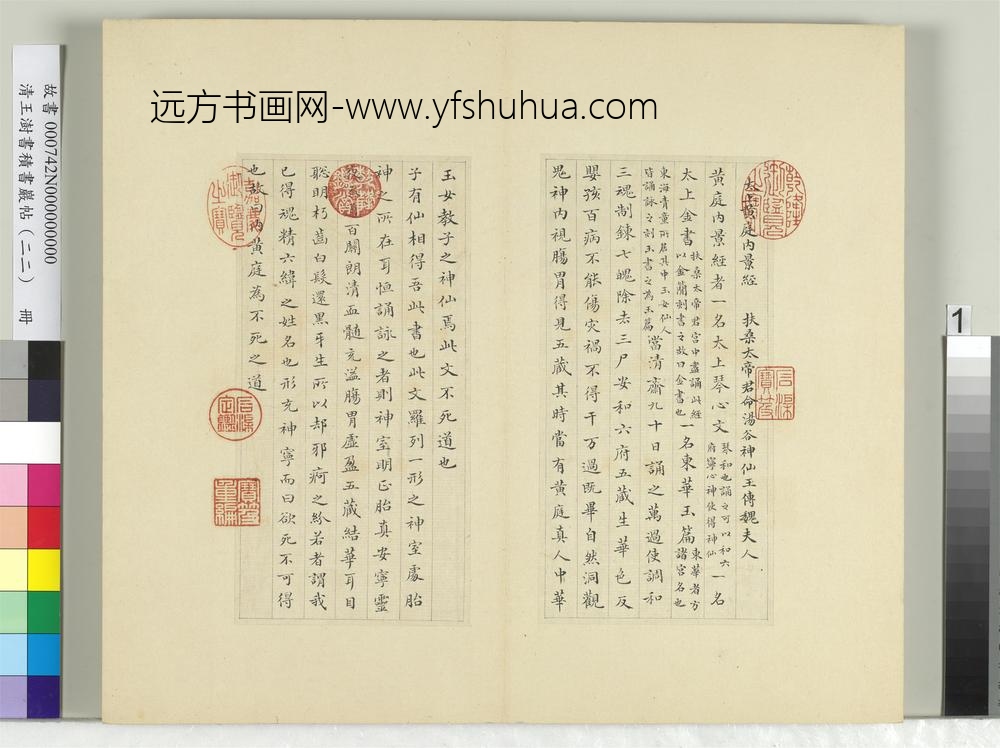 远方书画网-www.yfshuhua.com
故書 000742N000000000
清王澍書積書巖帖(二二) 冊
1
太上黃庭內景經 扶桑太帝君命湯谷神仙王傳魏夫人
黃庭內景經者一名太上琴心文 琴和也誦之可以和六
府寧心神使得神仙 一名
太上金書 扶桑太帝君宮中盡誦此經
以金簡刻書之故曰金書也 一名東華玉篇 東華者方
諸宮名也
東海青童所居其中玉女仙人
皆誦詠之刻玉書之為玉篇 當清齋九十日誦之萬過使調和
三魂制鍊七魄除去三尸安和六府五藏生華色反
嬰孩百病不能傷灾禍不得干万過既畢自然洞觀
鬼神內視腸胃得見五藏其時當有黃庭真人中華
玉女教子之神仙焉此文不死道也
子有仙相得吾此書也此文羅列一形之神室處胎
神之所在耳恒誦詠之者則神室明正胎真安寧靈
百關朗清血髓充溢腸胃虛盈五藏結華耳目
聰明朽齒白髮還黑平生所以却邪痾之紛若者謂我
已得魂精六緯之姓名也形充神寧而曰欲死不可得
也故曰內黃庭為不死之道
乾隆御覽之寶
石渠寶笈
嘉慶御覽之寶
石渠定鑑
寶笈重編